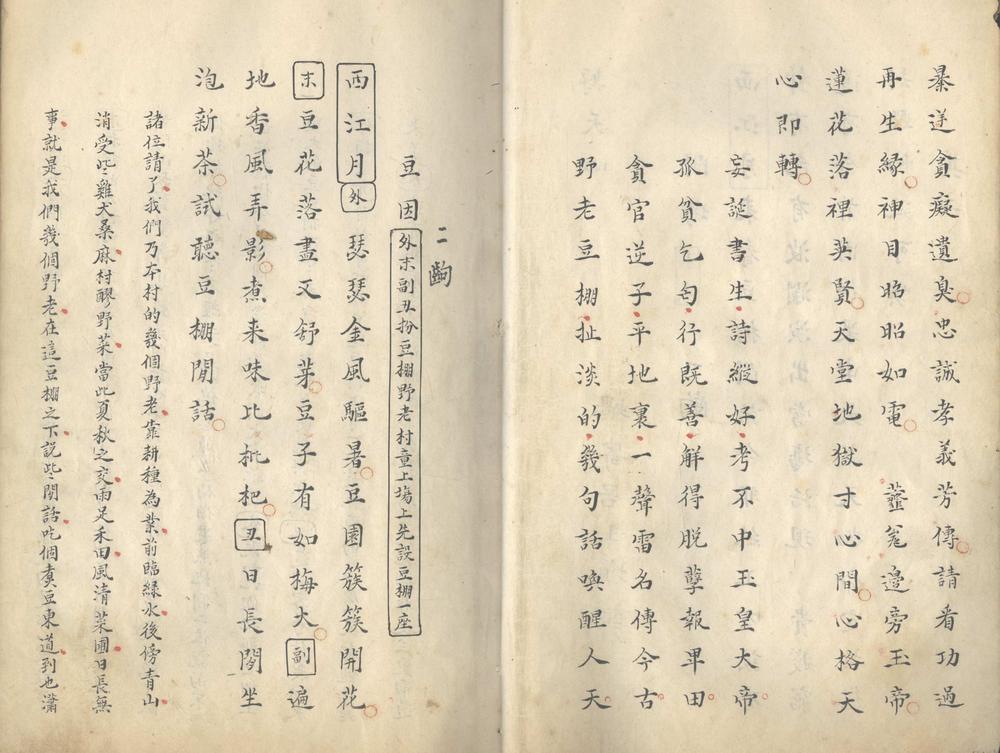 暴逆貪癡遺臭忠誠孝義芳傳請看功過
再生緣神目昭昭如電　虀瓮邊旁玉帝
蓮花落裡英賢天堂地獄寸心間心格天
心即轉
妄誕書生詩縱好考不中玉皇大帝
孤貧乞匄行既善解得脫孽報畢田
貪官逆子平地裏一聲雷名傳今古
野老豆棚扯淡的幾句話喚醒人天
二齣
豆因外末副丑扮豆棚野老村童上場上先設豆棚一座
西江月外瑟瑟金風驅暑豆園簇簇開花
末豆花落盡又舒芽豆子有如梅大副遍
地香風弄影煮来味比枇杷丑日長閒坐
泡新茶試聽豆棚閒話
諸位請了我們乃本村的幾個野老靠耕種為業前臨綠水後傍青山
消受些雞犬桑麻村醪野菜當此夏秋之交雨足禾田風清菜圃日長無
事就是我們幾個野老在這豆棚之下說些閒話吃個煑豆東道到也瀟